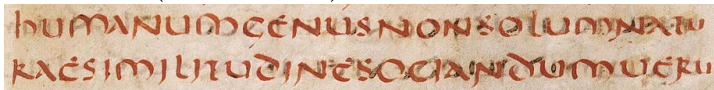 humanumgenusnonsoluminatu
raesimilitudinesociandumueru